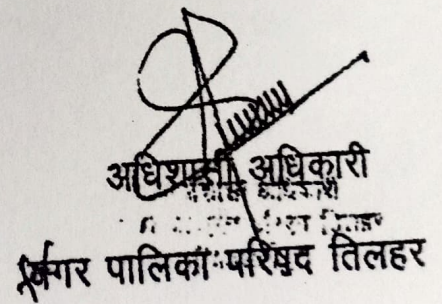 अधिशासी अधिकारी
नगर पालिका परिषद तिलहर